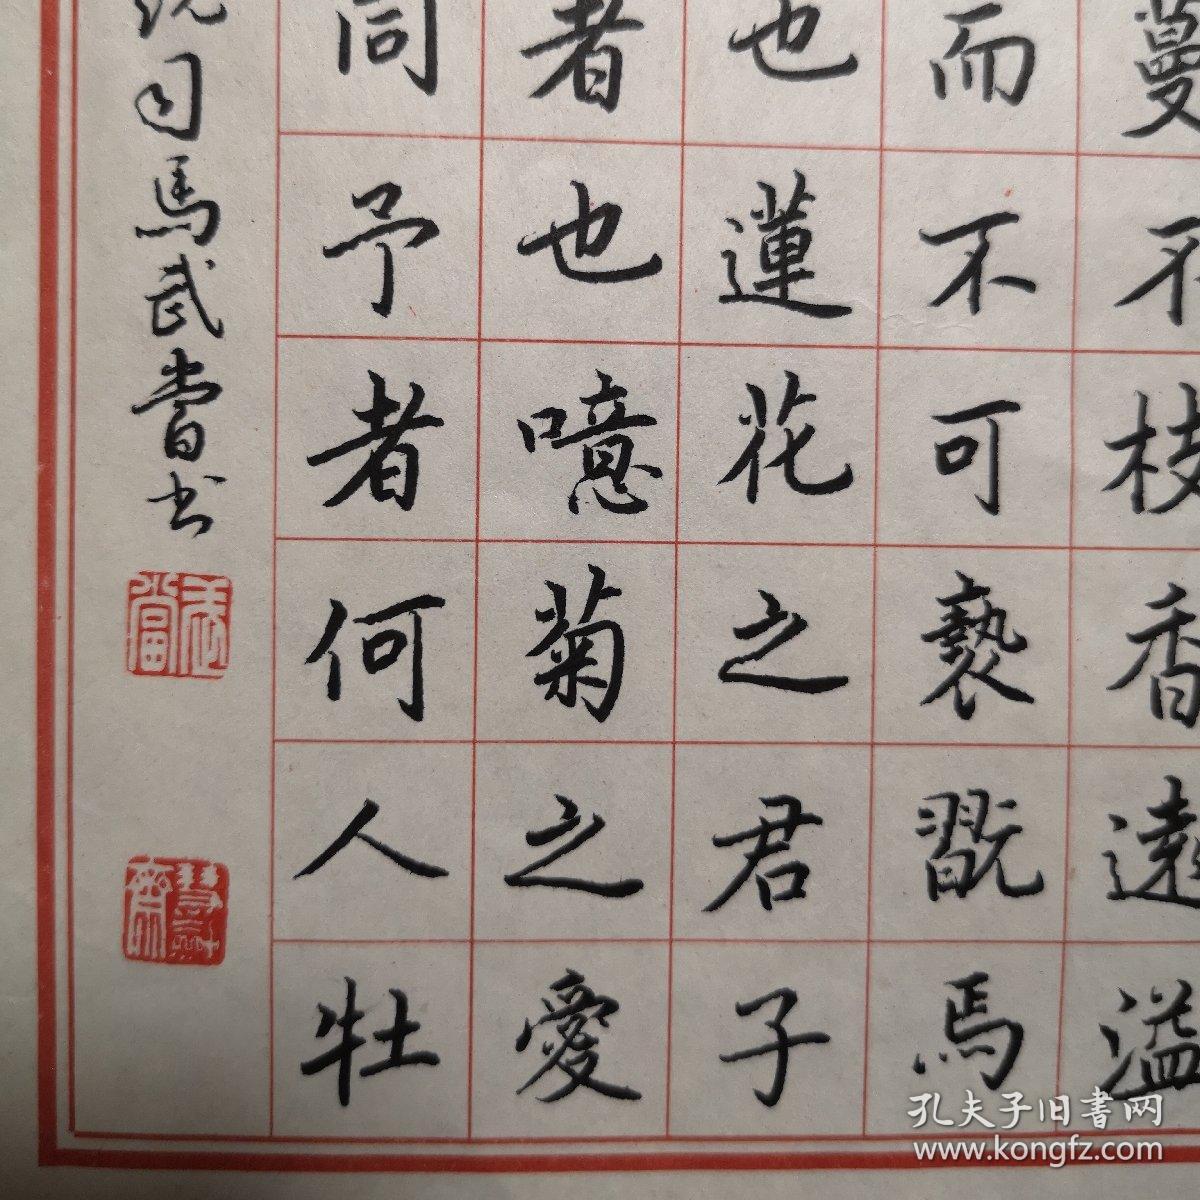 蔓不枝香遠溢
而不可褻翫焉
也蓮花之君子
者也噫菊之愛
同予者何人牡
司馬武當书
武當
孔夫子旧書网
www.kongfz.com